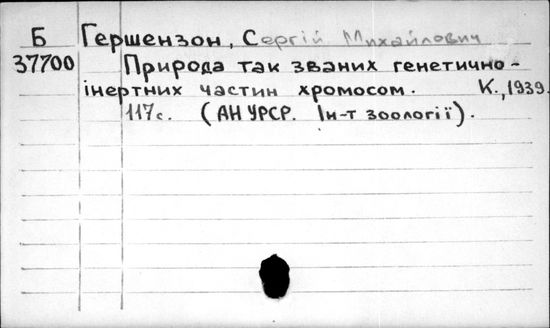 Б Гершензон, Сергій Михайлович
37700 Природа так званих генетично-
інертних частин хромосом. К., 1939.
117с. (АН УРСР. Ін-т зоології).